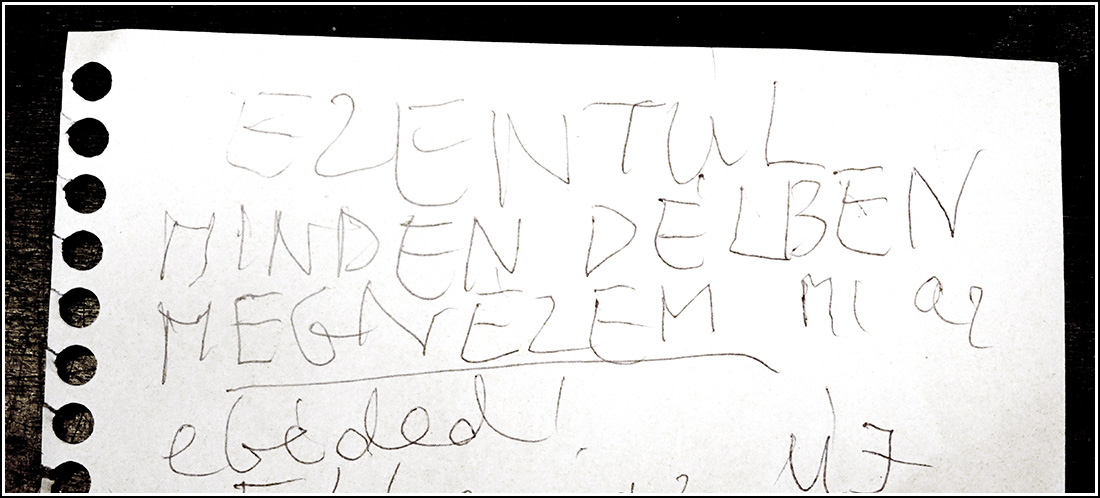 EZENTÚL
MINDEN DÉLBEN
MEGNÉZEM MI AZ
ebéded!